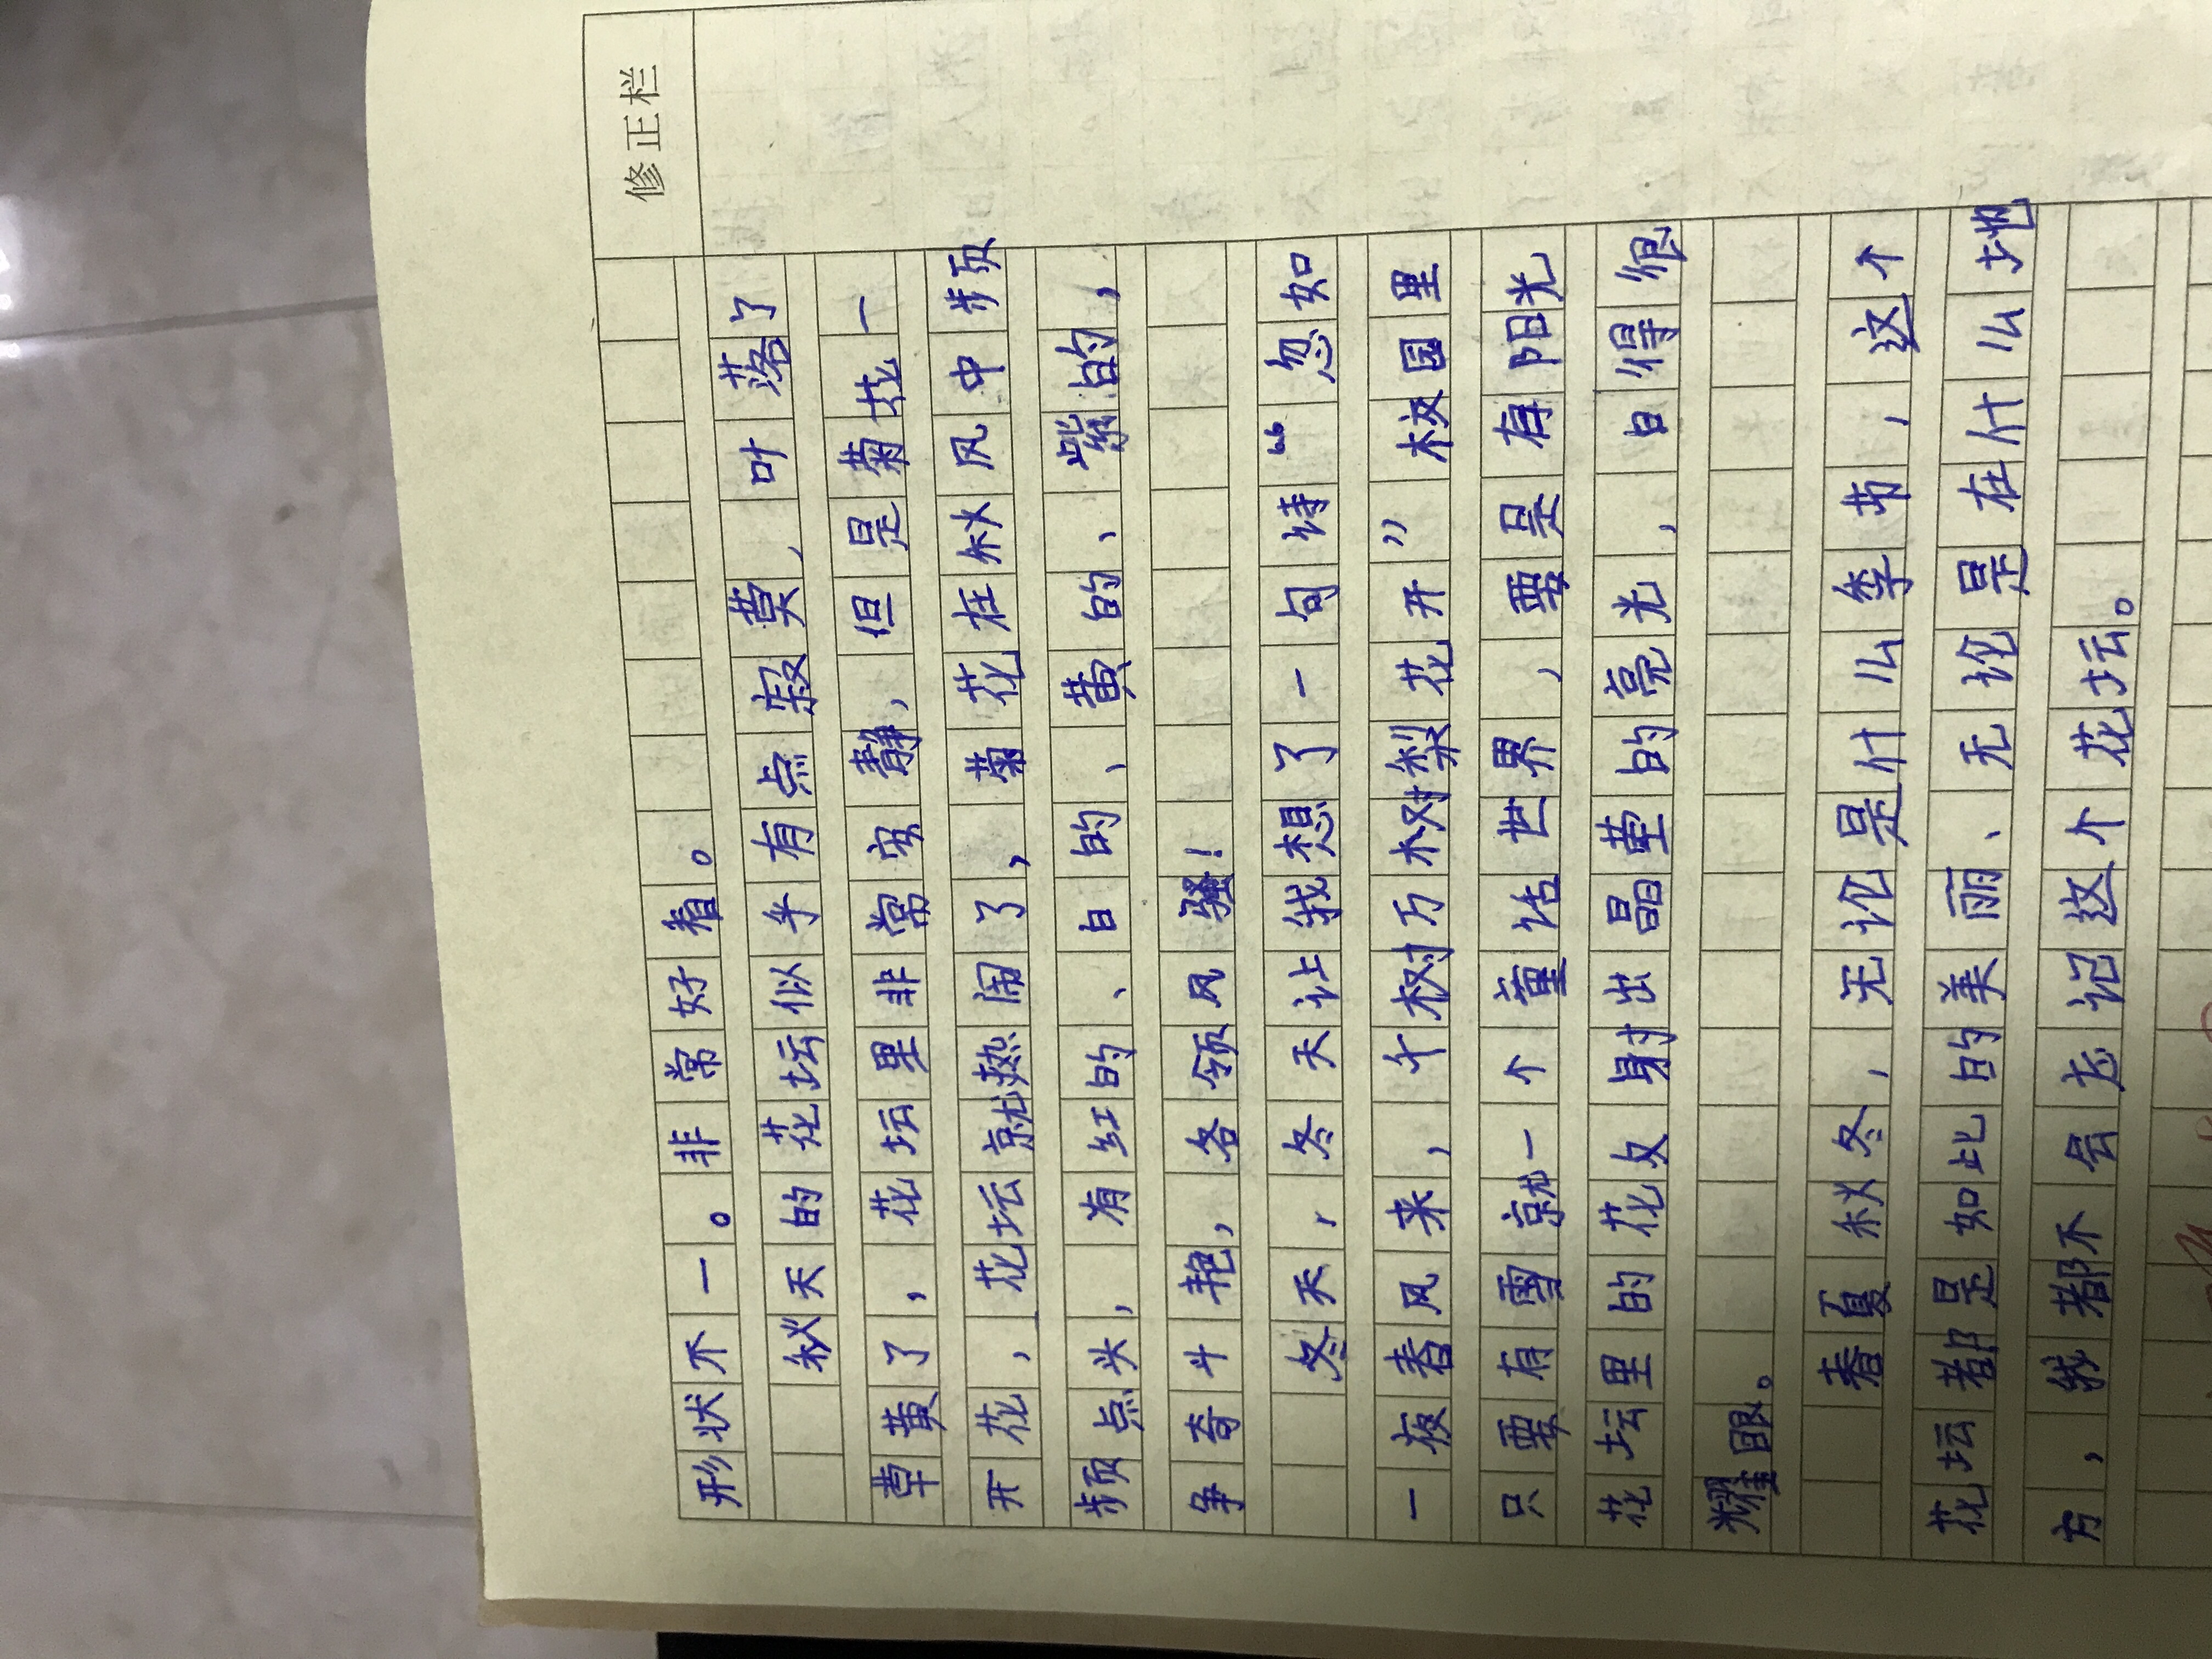 修正栏
形状不一。非常好看。
秋天的花坛似乎有点寂莫，叶落了
草黄了，花坛里非常安静，但是菊花一
开花，花坛就热闹了，菊花在秋风中频
频点头，有红的、白的、黄的、紫的，
争奇斗艳，各领风骚！
冬天，冬天让我想了一句诗“忽如
一夜春风来，千树万树梨花开”校园里
只要有雪就一个童话世界，要是有阳光
花坛里的花女射出晶莹的亮光，白得很
耀眼。
春夏秋冬，无论是什么季节，这个
花坛都是如此的美丽、无论是在什么地
方，我都不会忘记这个花坛。